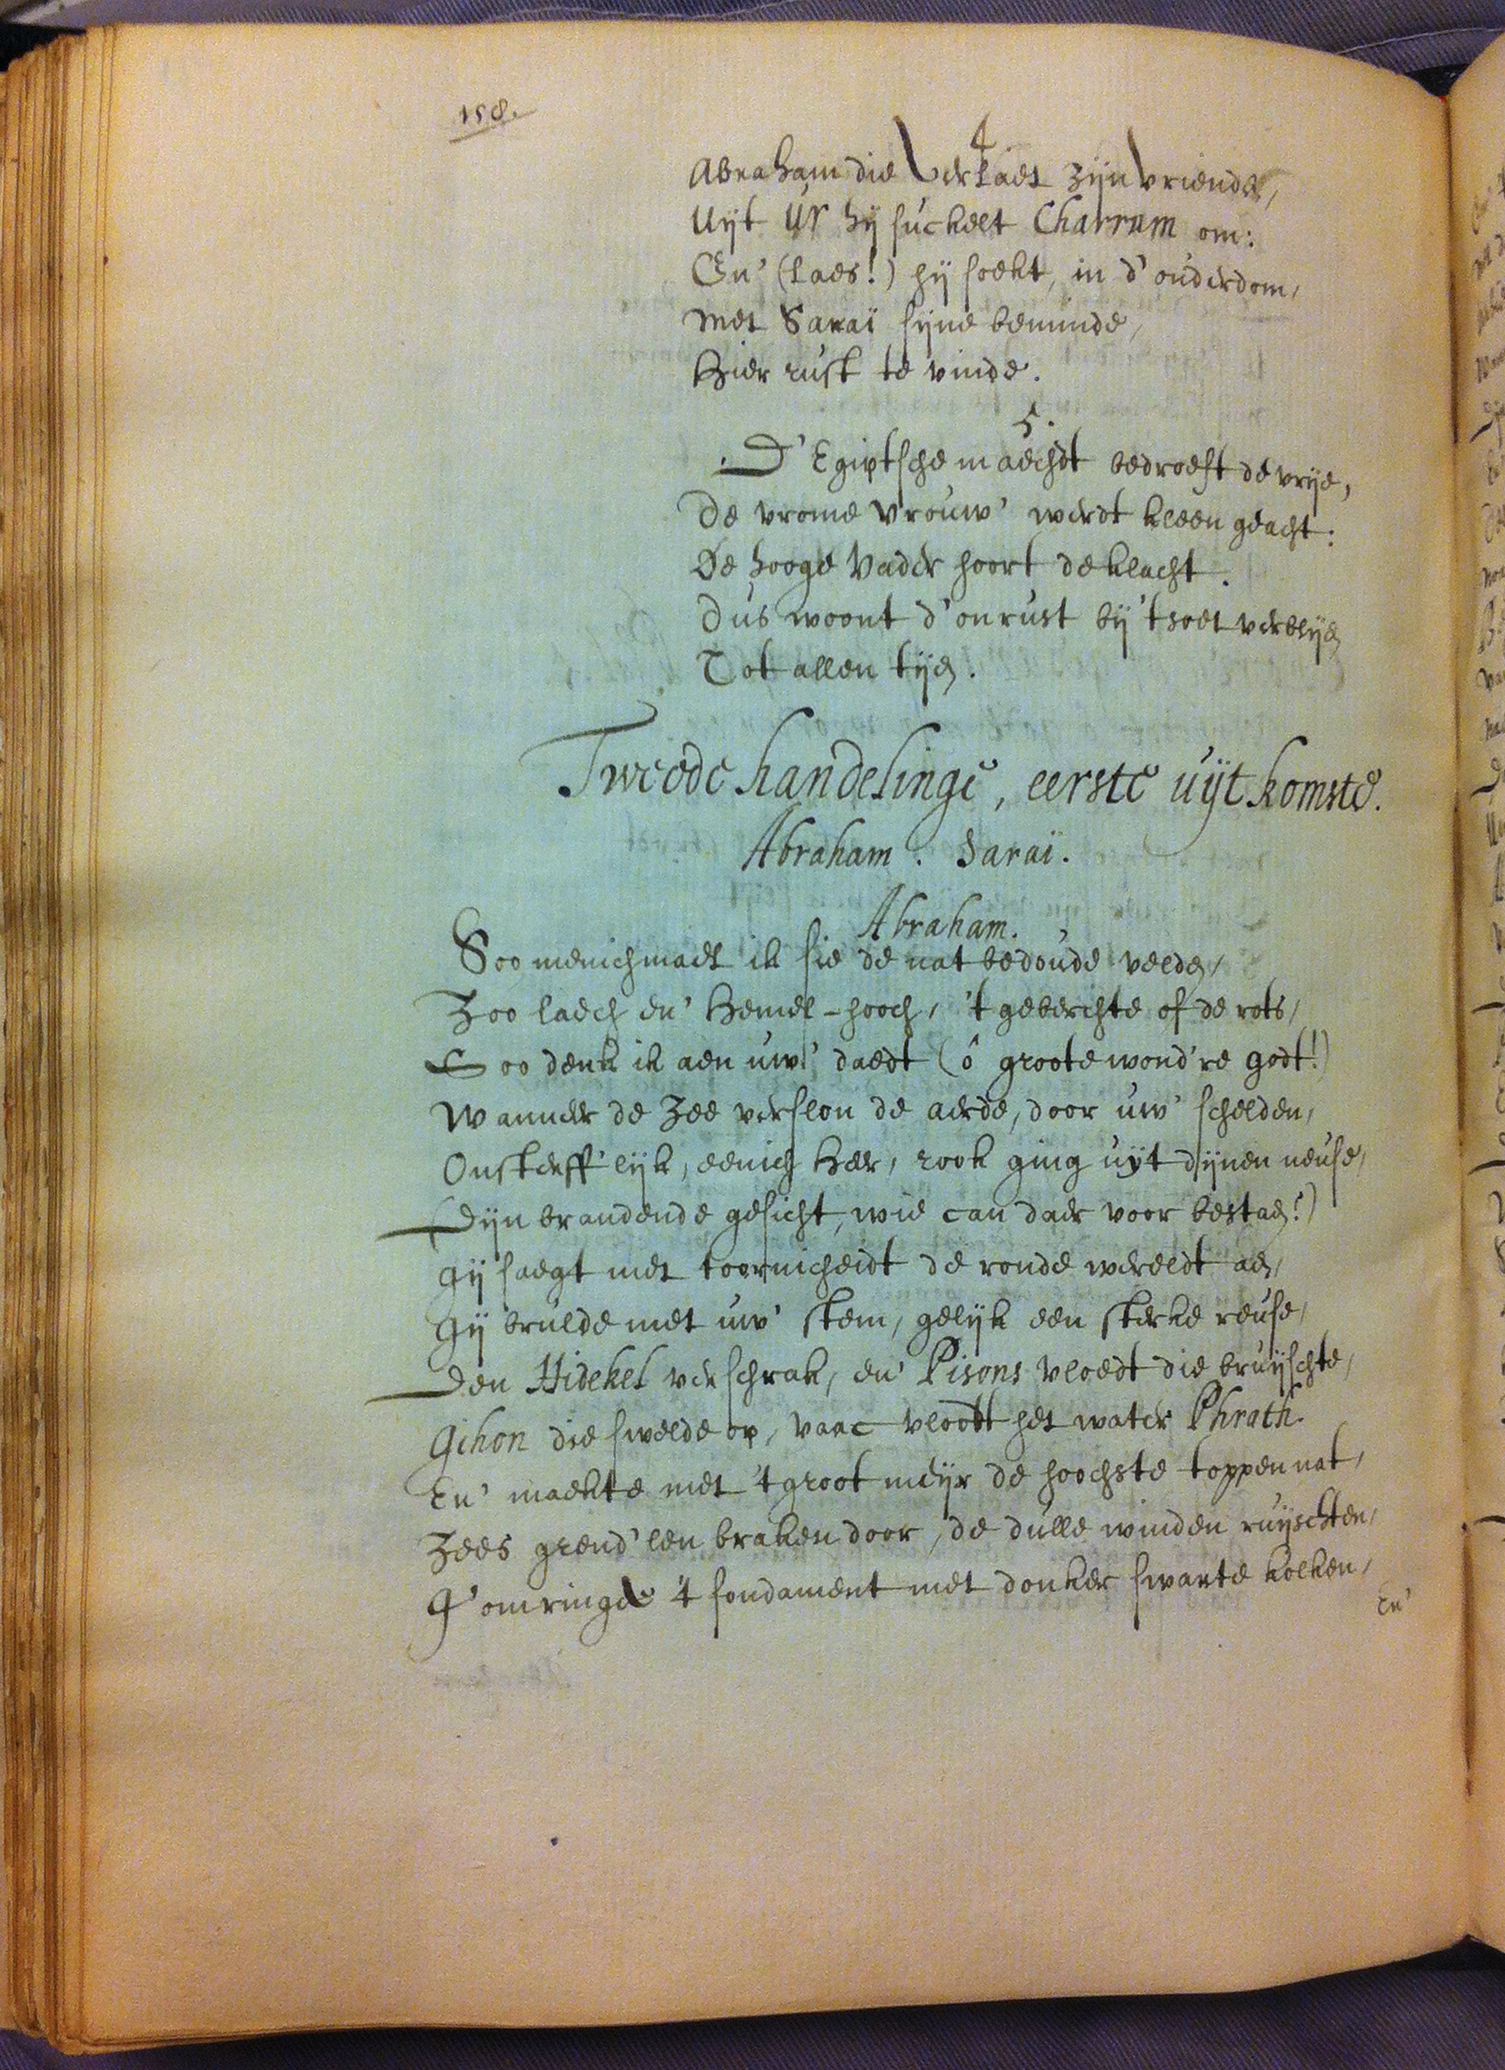 158.
4
Abraham die verlaet zijn vriende,
Uijt Ur hij suckelt Charrum om:
En' (laes!) hij soekt, in d'ouderdom,
met Saraï sijne beminde,
Hier rust te vinde.
5.
D'Egiptsche maechdt bedroeft de vrije,
De vrome vrouw' werdt kleen geacht:
De hooge Vader hoort de klacht.
Dus woont d'onrust bij 't soet verblijen
Tot allen tijen.
Tweede handelinge, eerste uijtkomste.
Abraham. Saraï.
Abraham.
Soo menichmael ik sie de nat bedoude velden,
Zoo laech en' Hemel-hooch, 't geberchte of de rots,
Soo denk ik aen uw' daedt (ô groote wond're godt!)
Wanneer de Zee verslon de aerde, door uw' schelden,
Onsterff'lijk, eenich Heer, rook ging uijt dijnen neuse,
(Dijn brandende gesicht, wie can daer voor bestaen?)
Gij saegt met toornicheidt de ronde wereldt aen,
Gij brulde met uw' stem, gelijk een sterke reuse,
Den Hidekel verschrak, en' Pisons vloedt die bruijschte,
Gihon die swelde op, vaac vloodt het water Phrath.
En' maekte met 't groot meijr de hoochste toppen nat,
Zees grend'len braken door, de dulle winden ruijschten,
G'omringde 't fondament met donker swarte kolken,
En'